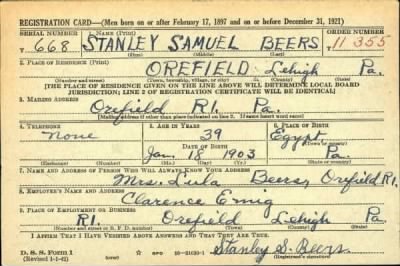 REGISTRATION CARD—(Men born on or after February 17, 1897 and on or before December 31, 1921)
SERIAL NUMBER 1. NAME (Print) ORDER NUMBER
T 668 STANLEY SAMUEL BEERS 11355
(First) (Middle) (Last)
2. PLACE OF RESIDENCE (Print)
OREFIELD Lehigh Pa.
(Number and street) (Town, township, village, or city) (County) (State)
[THE PLACE OF RESIDENCE GIVEN ON THE LINE ABOVE WILL DETERMINE LOCAL BOARD
JURISDICTION; LINE 2 OF REGISTRATION CERTIFICATE WILL BE IDENTICAL]
3. MAILING ADDRESS
Orefield R1. Pa.
[Mailing address if other than place indicated on line 2. If same insert word same]
4. TELEPHONE 5. AGE IN YEARS 6. PLACE OF BIRTH
None 39 Egypt
DATE OF BIRTH (Town or county)
Jan. 18 1903 Pa.
(Exchange) (Number) (Mo.) (Day) (Yr.) (State or country)
7. NAME AND ADDRESS OF PERSON WHO WILL ALWAYS KNOW YOUR ADDRESS
Mrs. Lula Beers, Orefield R1.
8. EMPLOYER'S NAME AND ADDRESS
Clarence Emig
9. PLACE OF EMPLOYMENT OR BUSINESS
R1. Orefield Lehigh Pa
(Number and street or R. F. D. number) (Town) (County) (State)
I AFFIRM THAT I HAVE VERIFIED ABOVE ANSWERS AND THAT THEY ARE TRUE.
D. S. S. Form 1
(Revised 1-1-42) GPO 16-21630-1 Stanley S. Beers